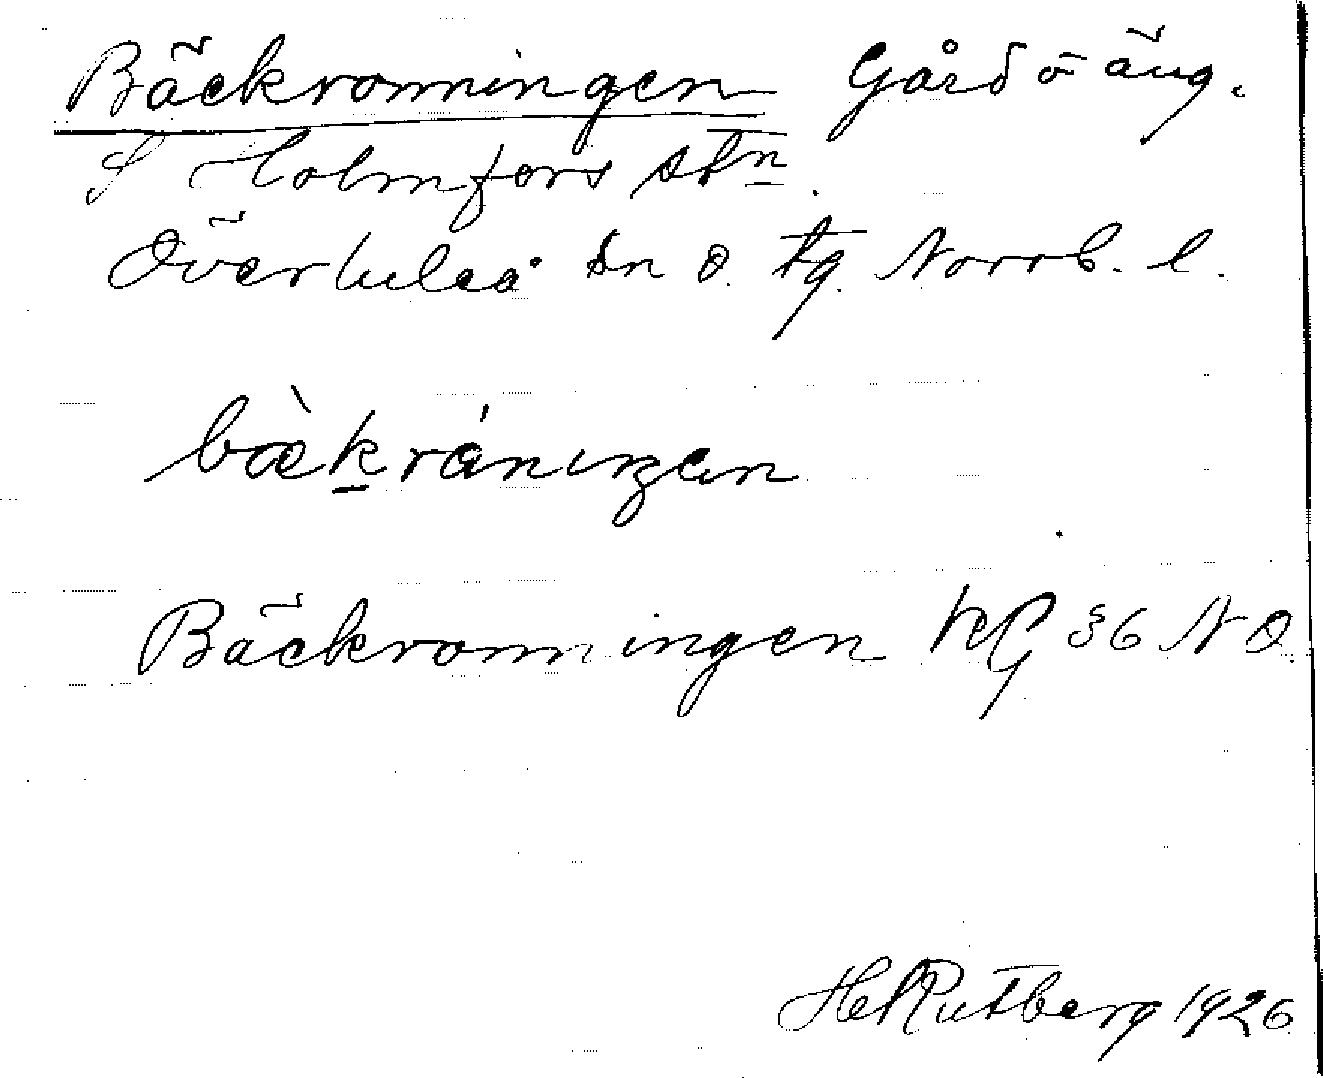 Bäckronningen Gård o äng.
S Holmfors stn.
Överluleå sn o. tg. Norrb. l.
bæ̀kråningen
Bäckronningen KG 36 NO
Hel Rutberg 1926